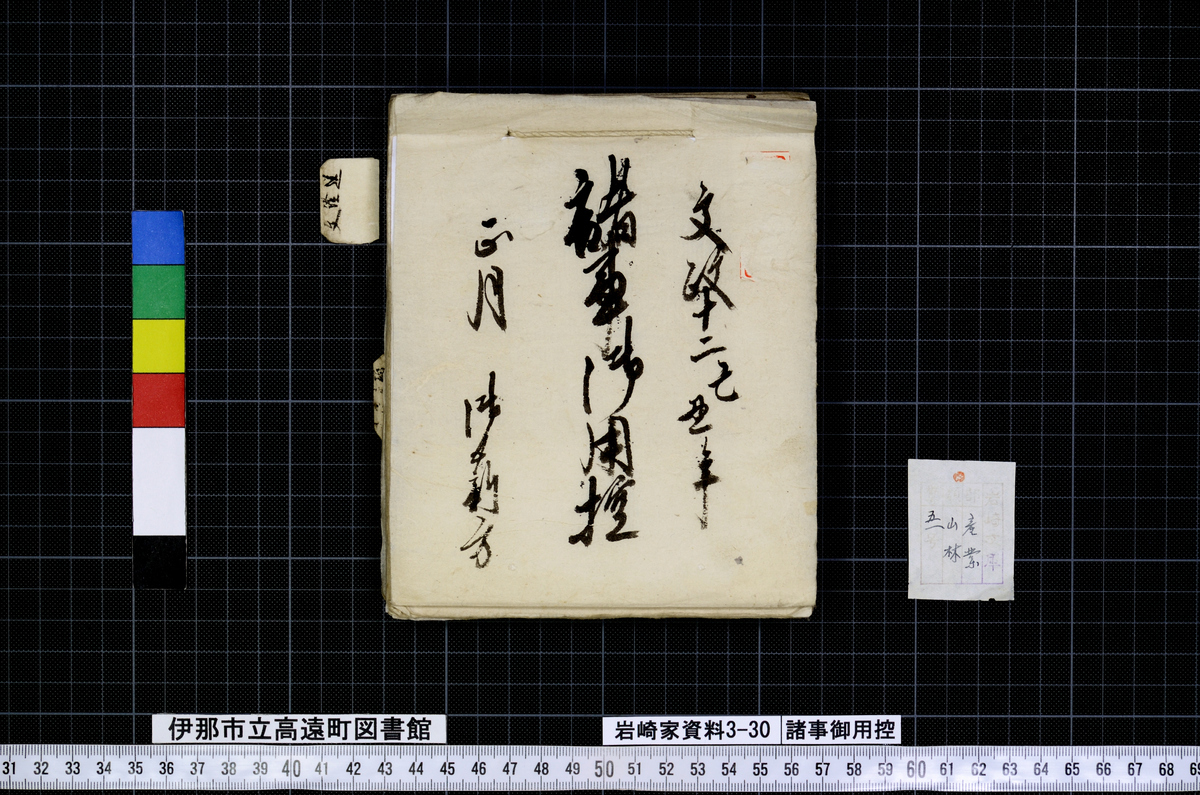 文政十二己丑年
諸事御用控
正月 御薪方
産業
山林
五
伊那市立高遠町図書館
岩崎家資料3-30
諸事御用控
31 32 33 34 35 36 37 38 39 40 41 42 43 44 45 46 47 48 49 50 51 52 53 54 55 56 57 58 59 60 61 62 63 64 65 66 67 68 69